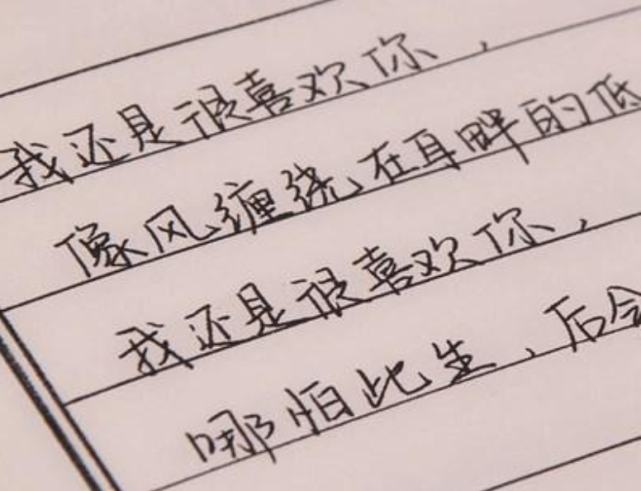 我还是很喜欢你，
像风缠绕在耳畔的低
我还是很喜欢你，
哪怕此生、后会